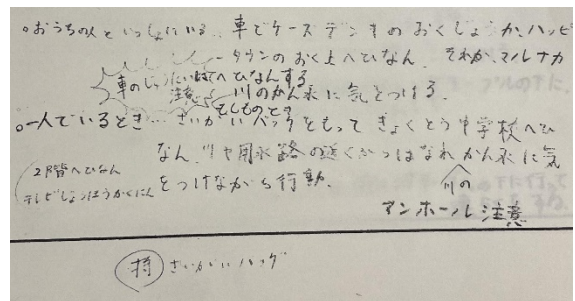 ○おうちの人といっしょにいる…車でケーズデンキのおくじょうか、ハッピ
ータウンのおく上へひなん。それか、マルナカ
へひなんする
車のじゅうたいに注意
川のかん水に気をつける。
もしものとき
○一人でいるとき…さいがいバッグをもってぎょくとう中学校へひ
なん。川や用水路の近くからはなれかん水に気
川の
をつけながら行動。
2階へひなん
テレビじょうほうかくにん
マンホール注意
持 さいがいバッグ